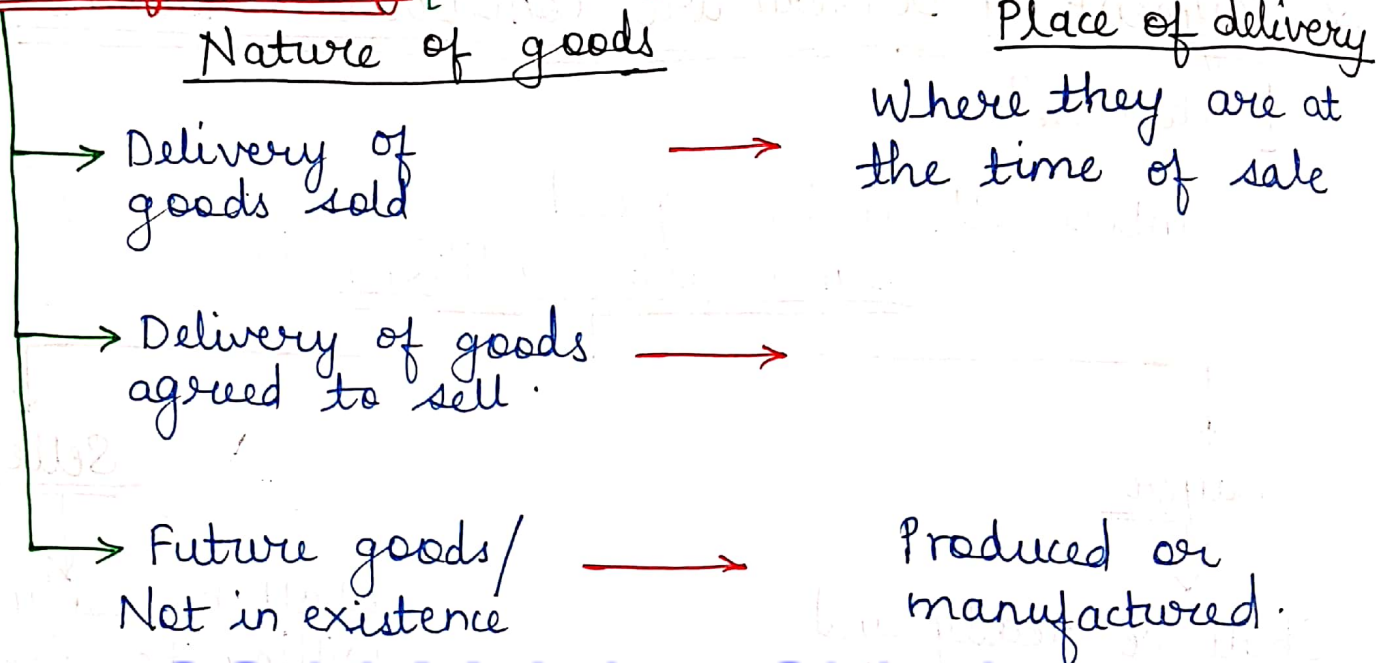 Nature of goods
Place of delivery
Delivery of
goods sold
Where they are at
the time of sale
Delivery of goods
agreed to sell.
Future goods/
Not in existence
Produced or
manufactured.